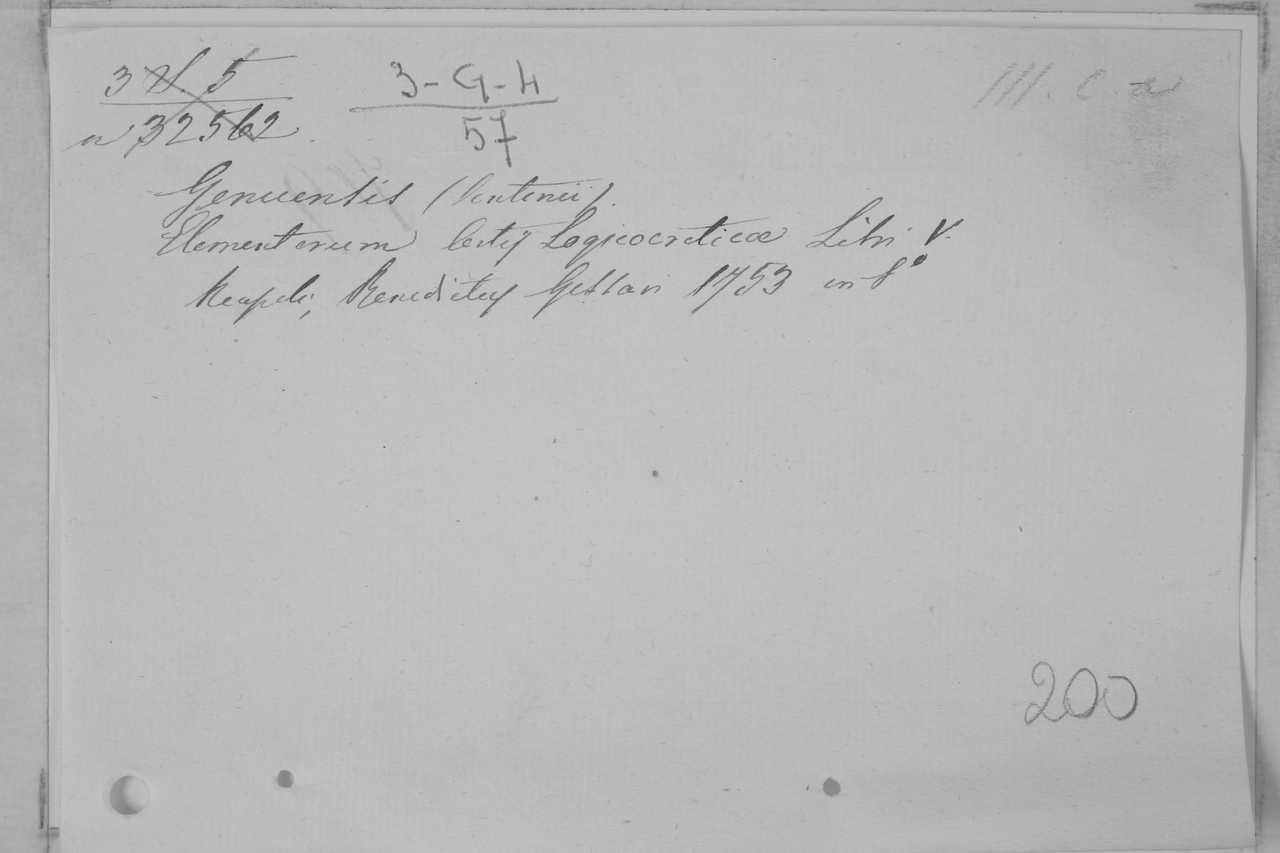 3 5
3-G-4
57
n 32562
III. C. a
Genuensis (Antonii).
Elementorum Artis Logicocriticæ Libri V.
Neapoli, Benedictus Gessari 1753 in 8°
200